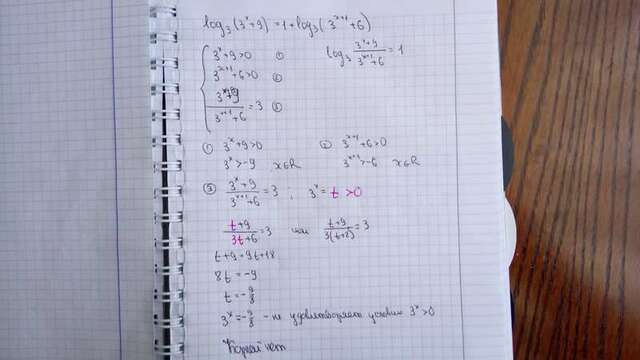 log₃(3ˣ+9) = 1+log₃(3ˣ⁺¹+6)
3ˣ+9>0 ① log₃ (3ˣ+9)/(3ˣ⁺¹+6) = 1
3ˣ⁺¹+6>0 ②
(3ˣ+9)/(3ˣ⁺¹+6) = 3 ③
① 3ˣ+9>0 ② 3ˣ⁺¹+6>0
3ˣ>-9 x∈R 3ˣ⁺¹>-6 x∈R
③ (3ˣ+9)/(3ˣ⁺¹+6) = 3 ; 3ˣ = t >0
(t+9)/(3t+6) = 3 или (t+9)/(3(t+2)) = 3
t+9=9t+18
8t = -9
t = -9/8
3ˣ = -9/8 - не удовлетворяет условию 3ˣ>0
Корней нет